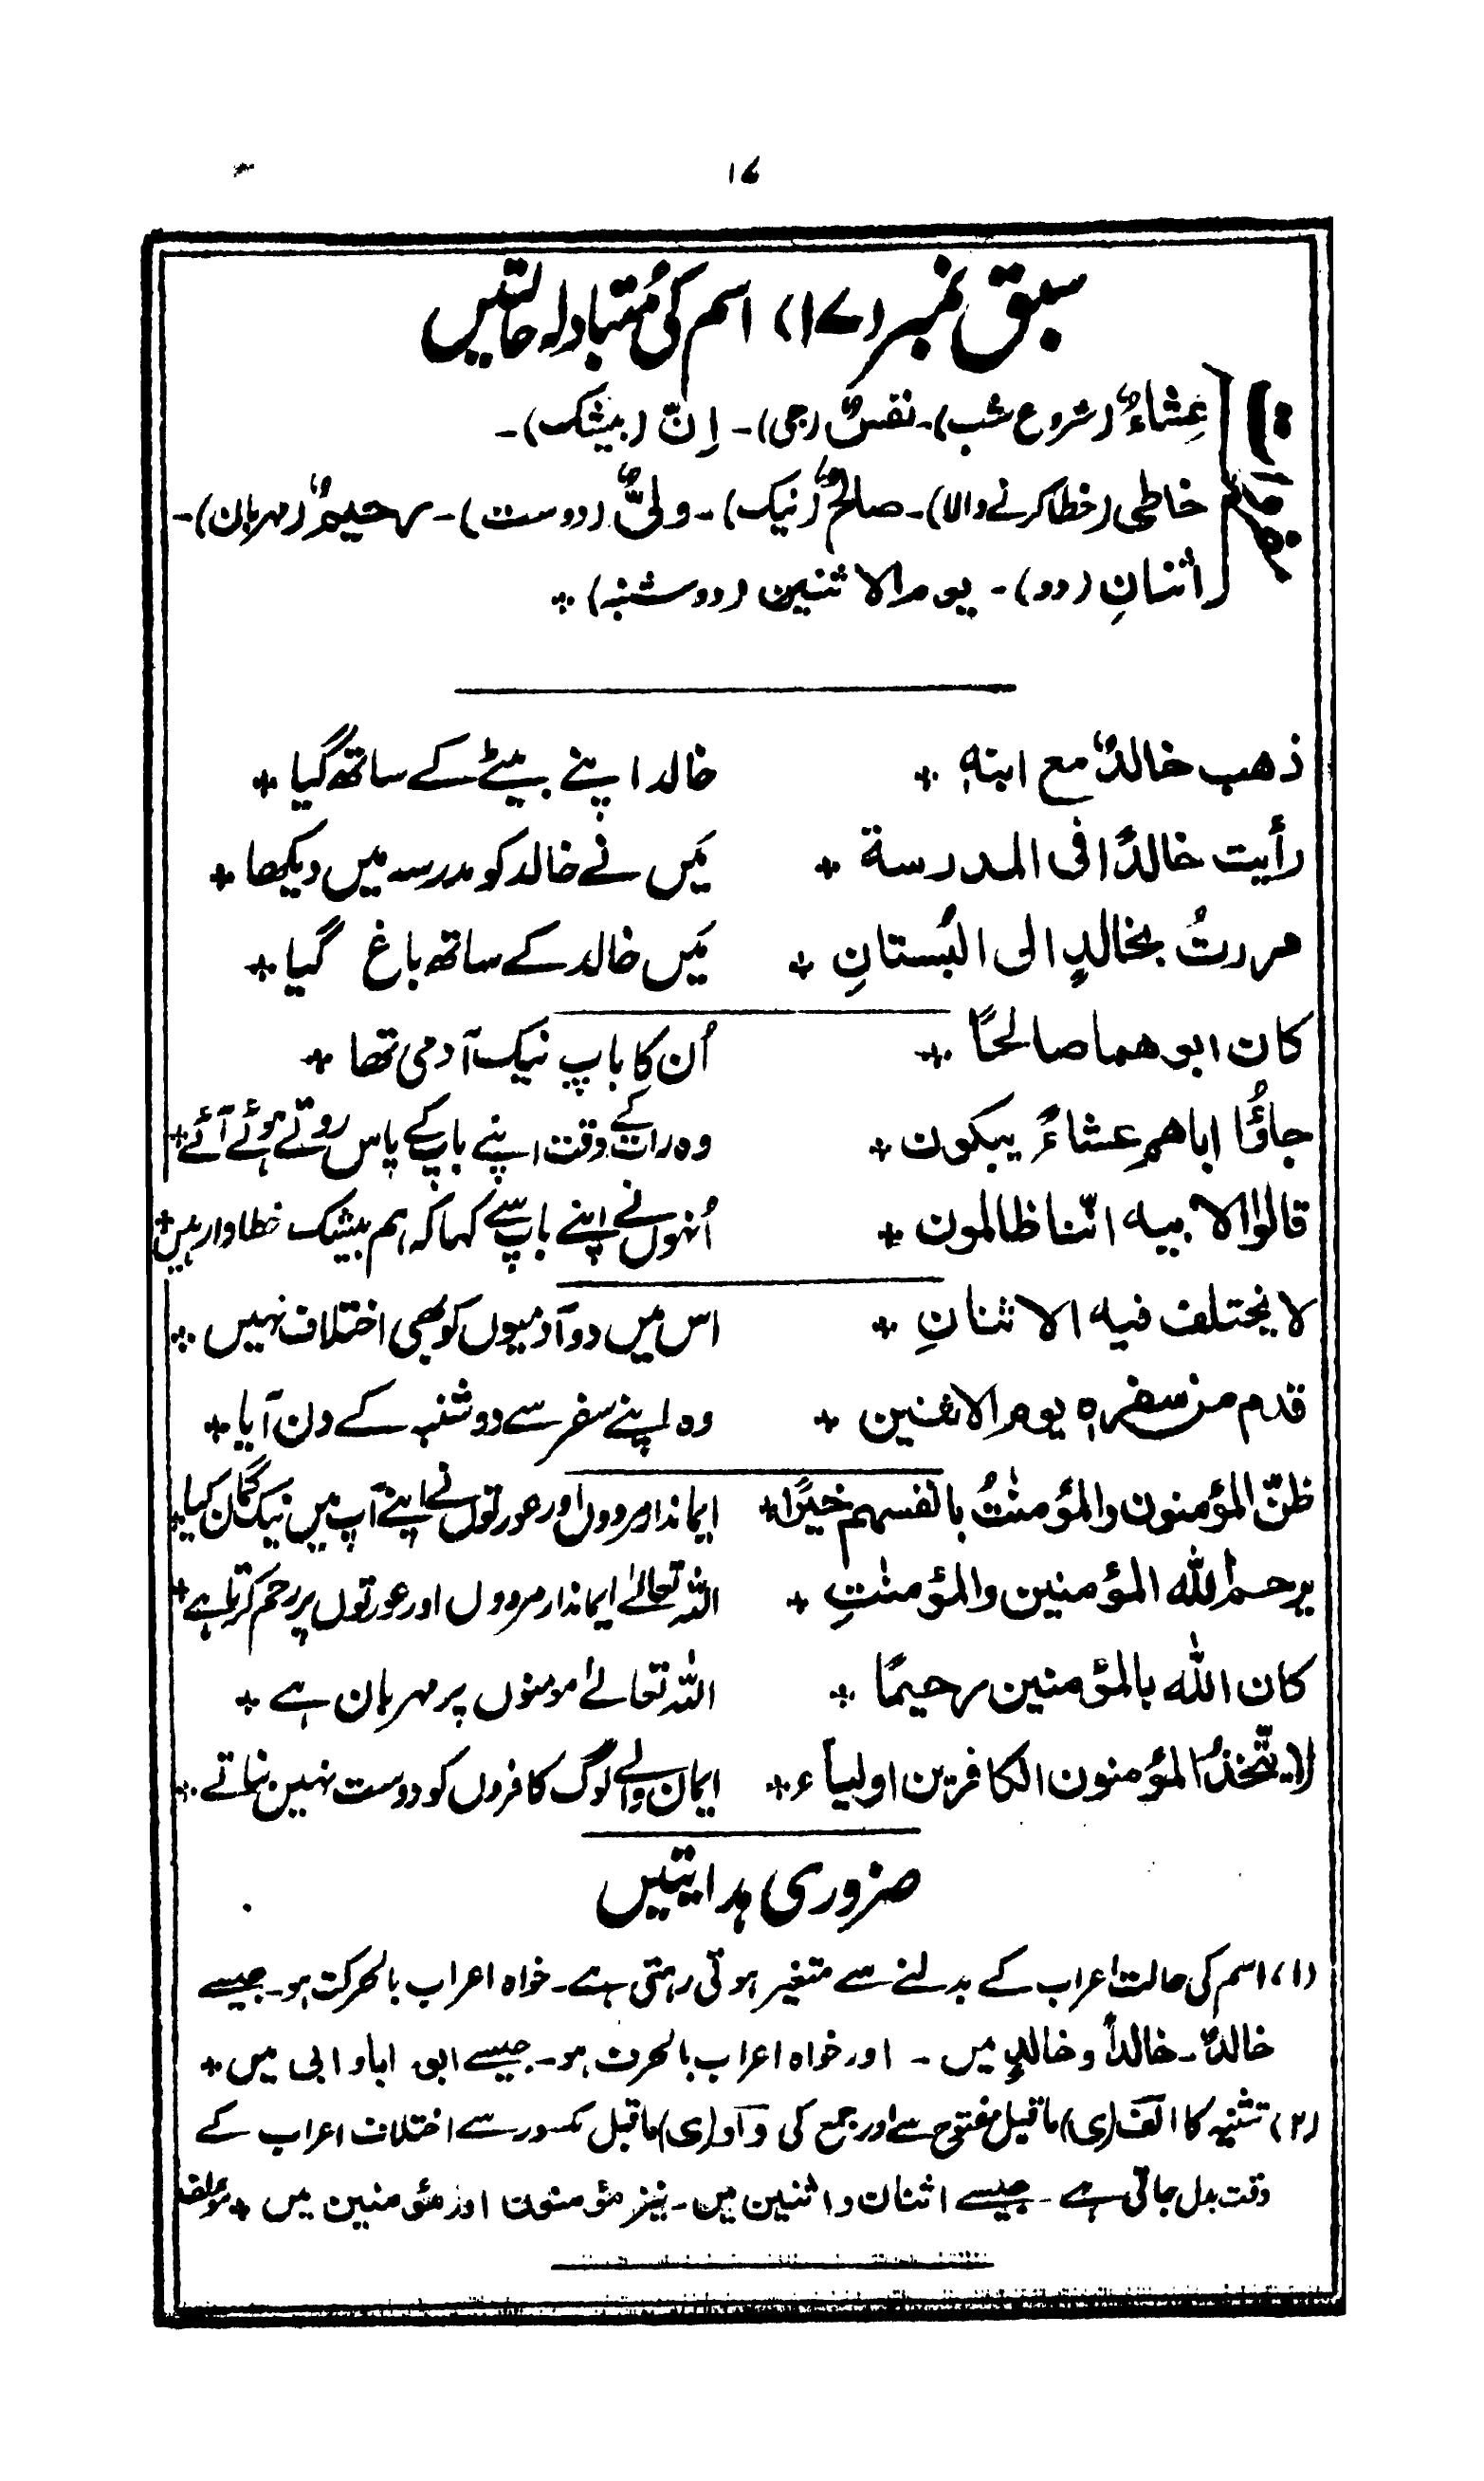 ۱۷
سبق نمبر (۱۷) اسم کی مُتبادلہ حالتیں
عِشاءٌ (شروع شب)۔ نفسٌ (جی)۔ اِنّ (بیشک)۔
خاطی (خطا کرنے والا)۔ صالحٌ (نیک)۔ ولیٌّ (دوست)۔ رحیمٌ (مہربان)۔
اثنانِ (دو)۔ یوم الاثنین (دوشنبہ) ؞
ذھب خالدٌ مع ابنہٖ ؞ خالد اپنے بیٹے کے ساتھ گیا ؞
رأیت خالدًا فی المدرسة ؞ مَیں نے خالد کو مدرسہ میں دیکھا ؞
مررتُ بخالدٍ الی البُستانِ ؞ مَیں خالد کے ساتھ باغ گیا ؞
کان ابوھما صالحًا ؞ اُن کا باپ نیک آدمی تھا ؞
جاؤُا اباھم عشاءً یبکون ؞ وہ رات کے وقت اپنے باپ کے پاس روتے ہوئے آئے ؞
قالوا لابیہ انّنا ظالمون ؞ اُنہوں نے اپنے باپ سے کہا کہ ہم بیشک خطاوار ہیں ؞
لا یختلف فیہ الاثنانِ ؞ اس میں دو آدمیوں کو بھی اختلاف نہیں ؞
قدم من سفرہٖ یوم الاثنین ؞ وہ اپنے سفر سے دوشنبہ کے دن آیا ؞
ظنّ المؤمنون والمؤمنٰتُ بانفسہم خیرًا ؞ ایماندار مردوں اور عورتوں نے اپنے آپ میں نیک گمان کیا ؞
یرحم اللّٰہ المؤمنین والمؤمنٰتِ ؞ اللّٰہ تعالےٰ ایماندار مردوں اور عورتوں پر رحم کرتا ہے ؞
کان اللّٰہ بالمؤمنین رحیمًا ؞ اللّٰہ تعالےٰ مومنوں پر مہربان ہے ؞
لا یتّخذُ المؤمنون الکافرین اولیاء ؞ ایمان والے لوگ کافروں کو دوست نہیں بناتے ؞
ضروری ہدایتیں
(۱) اسم کی حالت اعراب کے بدلنے سے متغیر ہوتی رہتی ہے۔ خواہ اعراب بالحرکت ہو۔ جیسے
خالدٌ۔ خالداً و خالدٍ میں ۔ اور خواہ اعراب بالحرف ہو۔ جیسے ابو، ابا و ابی میں ؞
(۲) تثنیہ کا الف (ی) ماقبل مفتوح سے اور جمع کی واو (ی) ماقبل مکسور سے اختلاف اعراب کے
وقت بدل جاتی ہے ۔ جیسے اثنان و اثنین میں۔ نیز مؤمنون اور مؤمنین میں ؞ مؤلف